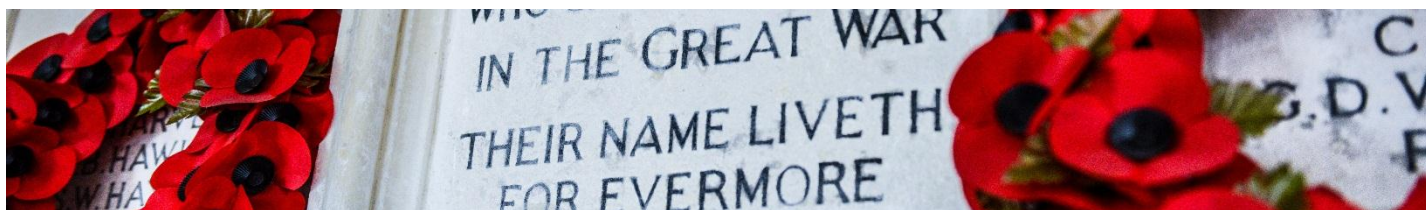 IN THE GREAT WAR
THEIR NAME LIVETH
FOR EVERMORE
B.HAW
S.W.HA
G.D.